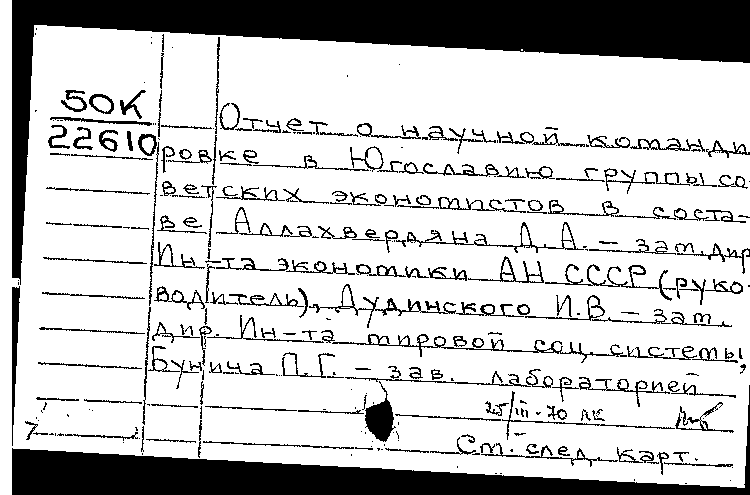 50К
22610
Отчет о научной команди
ровке в Югославию группы со-
ветских экономистов в соста-
ве Аллахвердяна Д. А. – зам. дир.
Ин-та экономики АН СССР (руко-
водитель), Дудинского И.В. – зам.
дир. Ин-та мировой соц. системы,
Бунича П.Г. – зав. лабораторией
25/III-70
Ст. след. карт.